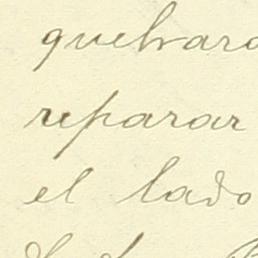 quebrara
reparar
el lado